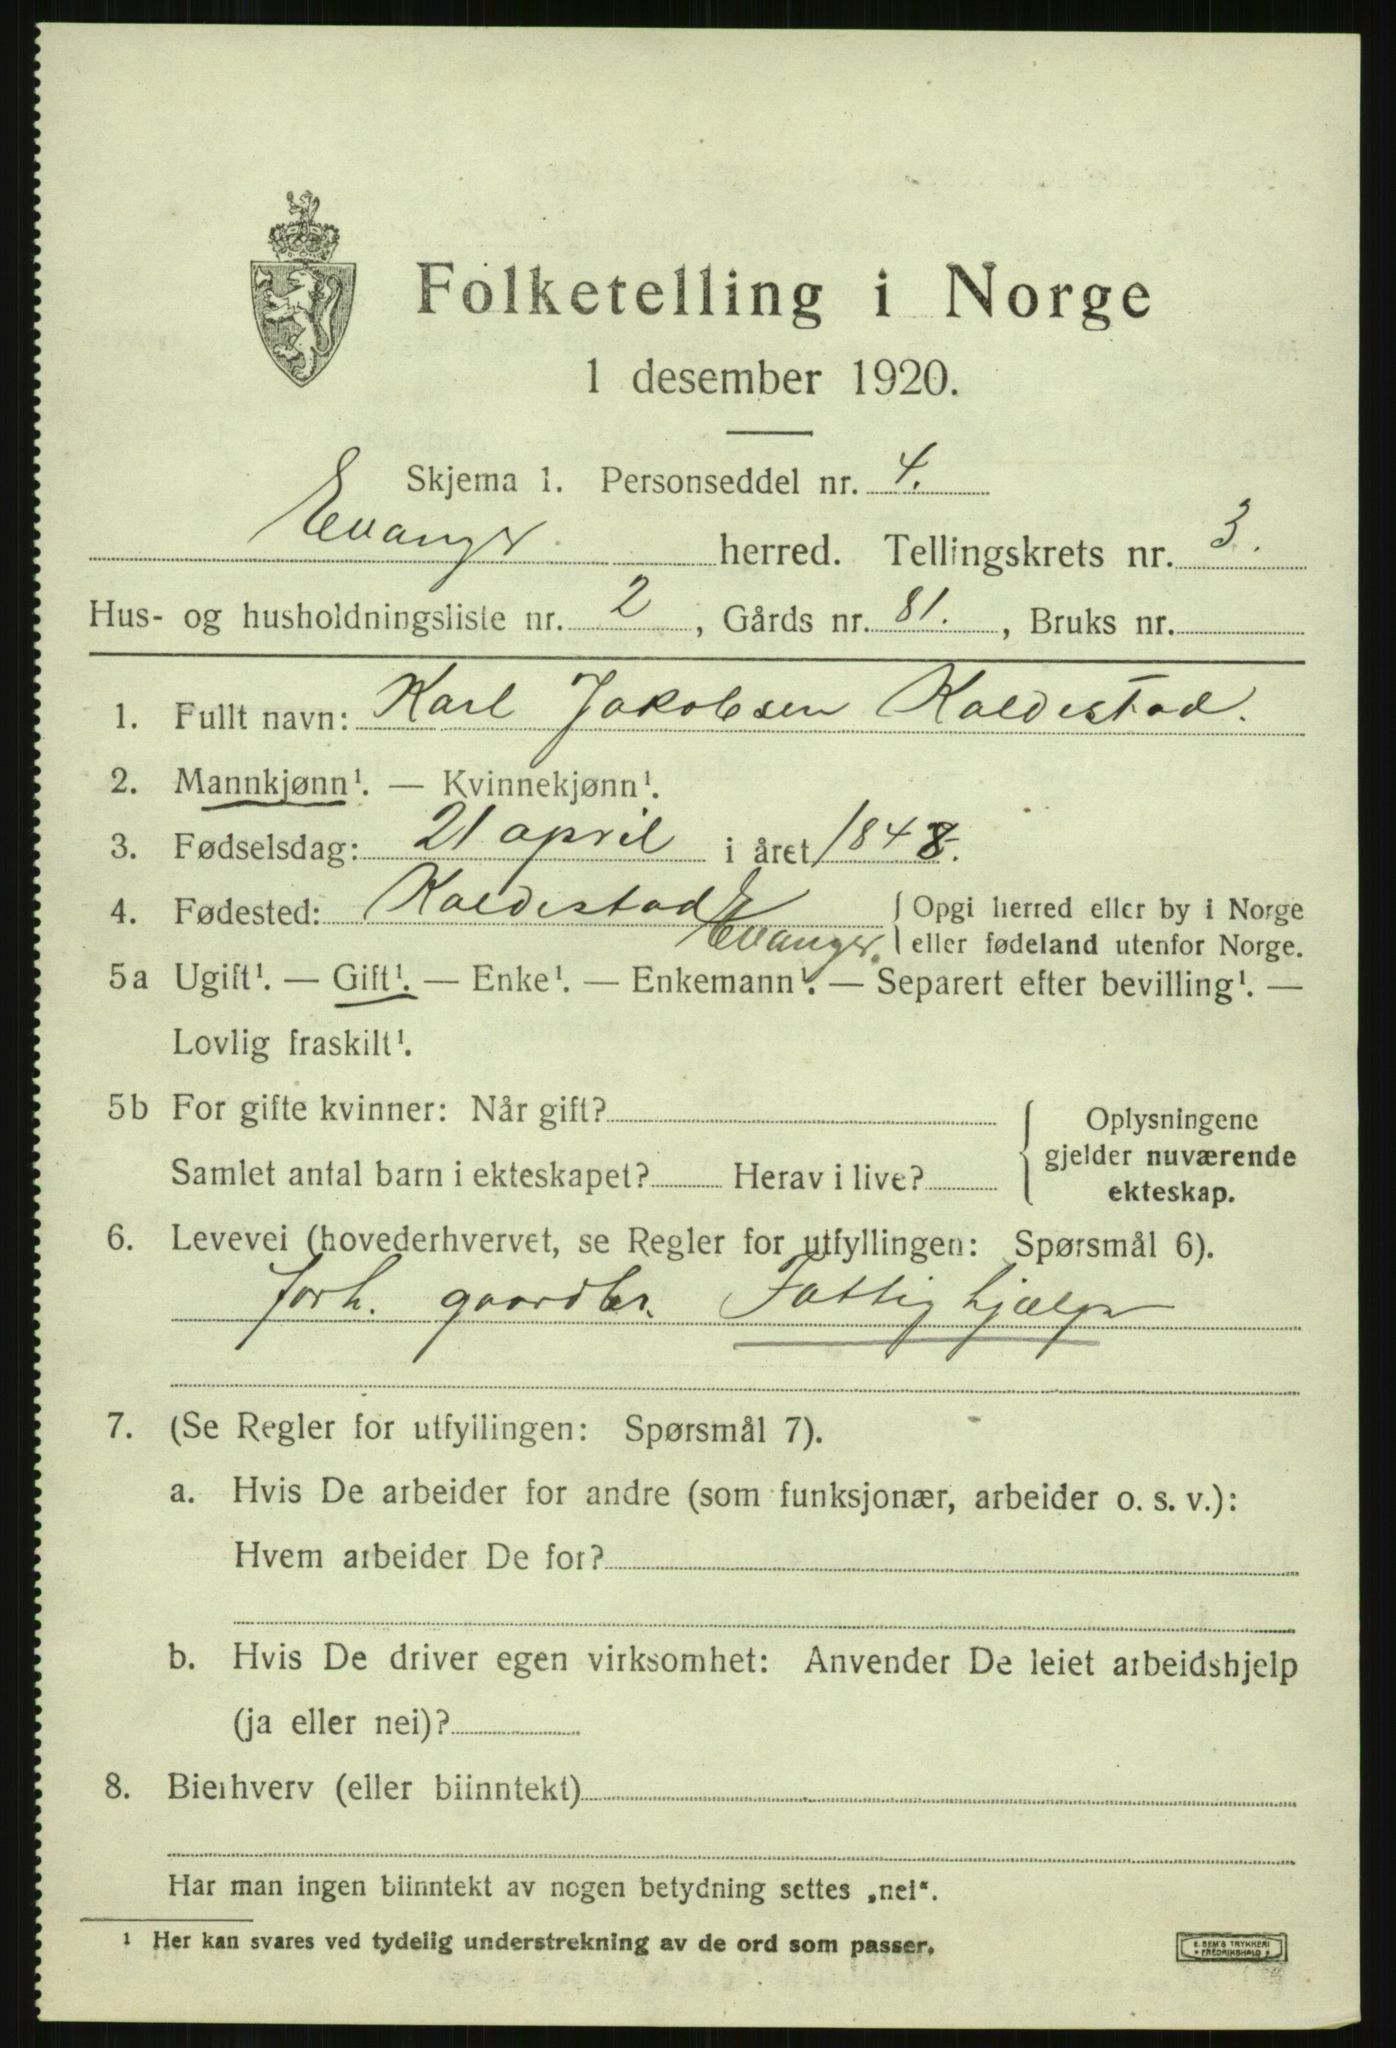 Folketelling i Norge
1 desember 1920.
Skjema 1. Personseddel nr. 4.
Evanger herred. Tellingskrets nr. 3.
Hus- og husholdningsliste nr. 2, Gårds nr. 81., Bruks nr.
1. Fullt navn: Karl Jakobsen Kaldestad.
2. Mannkjønn¹. — Kvinnekjønn¹.
3. Fødselsdag: 21 april i året 1848.
4. Fødested: Kaldestad Evanger. { Opgi herred eller by i Norge
eller fødeland utenfor Norge.
5a Ugift¹. — Gift¹. — Enke¹. — Enkemann¹. — Separert efter bevilling¹. —
Lovlig fraskilt¹.
5b For gifte kvinner: Når gift?
Samlet antal barn i ekteskapet? Herav i live?
{ Oplysningene
gjelder nuværende
ekteskap.
6. Levevei (hovederhvervet, se Regler for utfyllingen: Spørsmål 6).
forh. gaardbr. Fattighjælp
7. (Se Regler for utfyllingen: Spørsmål 7).
a. Hvis De arbeider for andre (som funksjonær, arbeider o. s. v.):
Hvem arbeider De for?
b. Hvis De driver egen virksomhet: Anvender De leiet arbeidshjelp
(ja eller nei)?
8. Bierhverv (eller biinntekt)
Har man ingen biinntekt av nogen betydning settes „nei“.
¹ Her kan svares ved tydelig understrekning av de ord som passer.
E. SEM'S TRYKKERI
FREDRIKSHALD